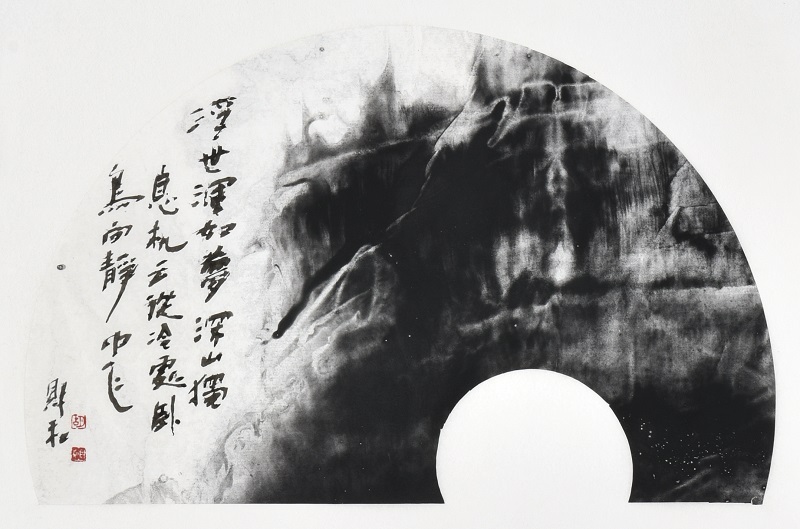 浮世渾如夢深山獨
息机云從冷處卧
鳥向靜中飞